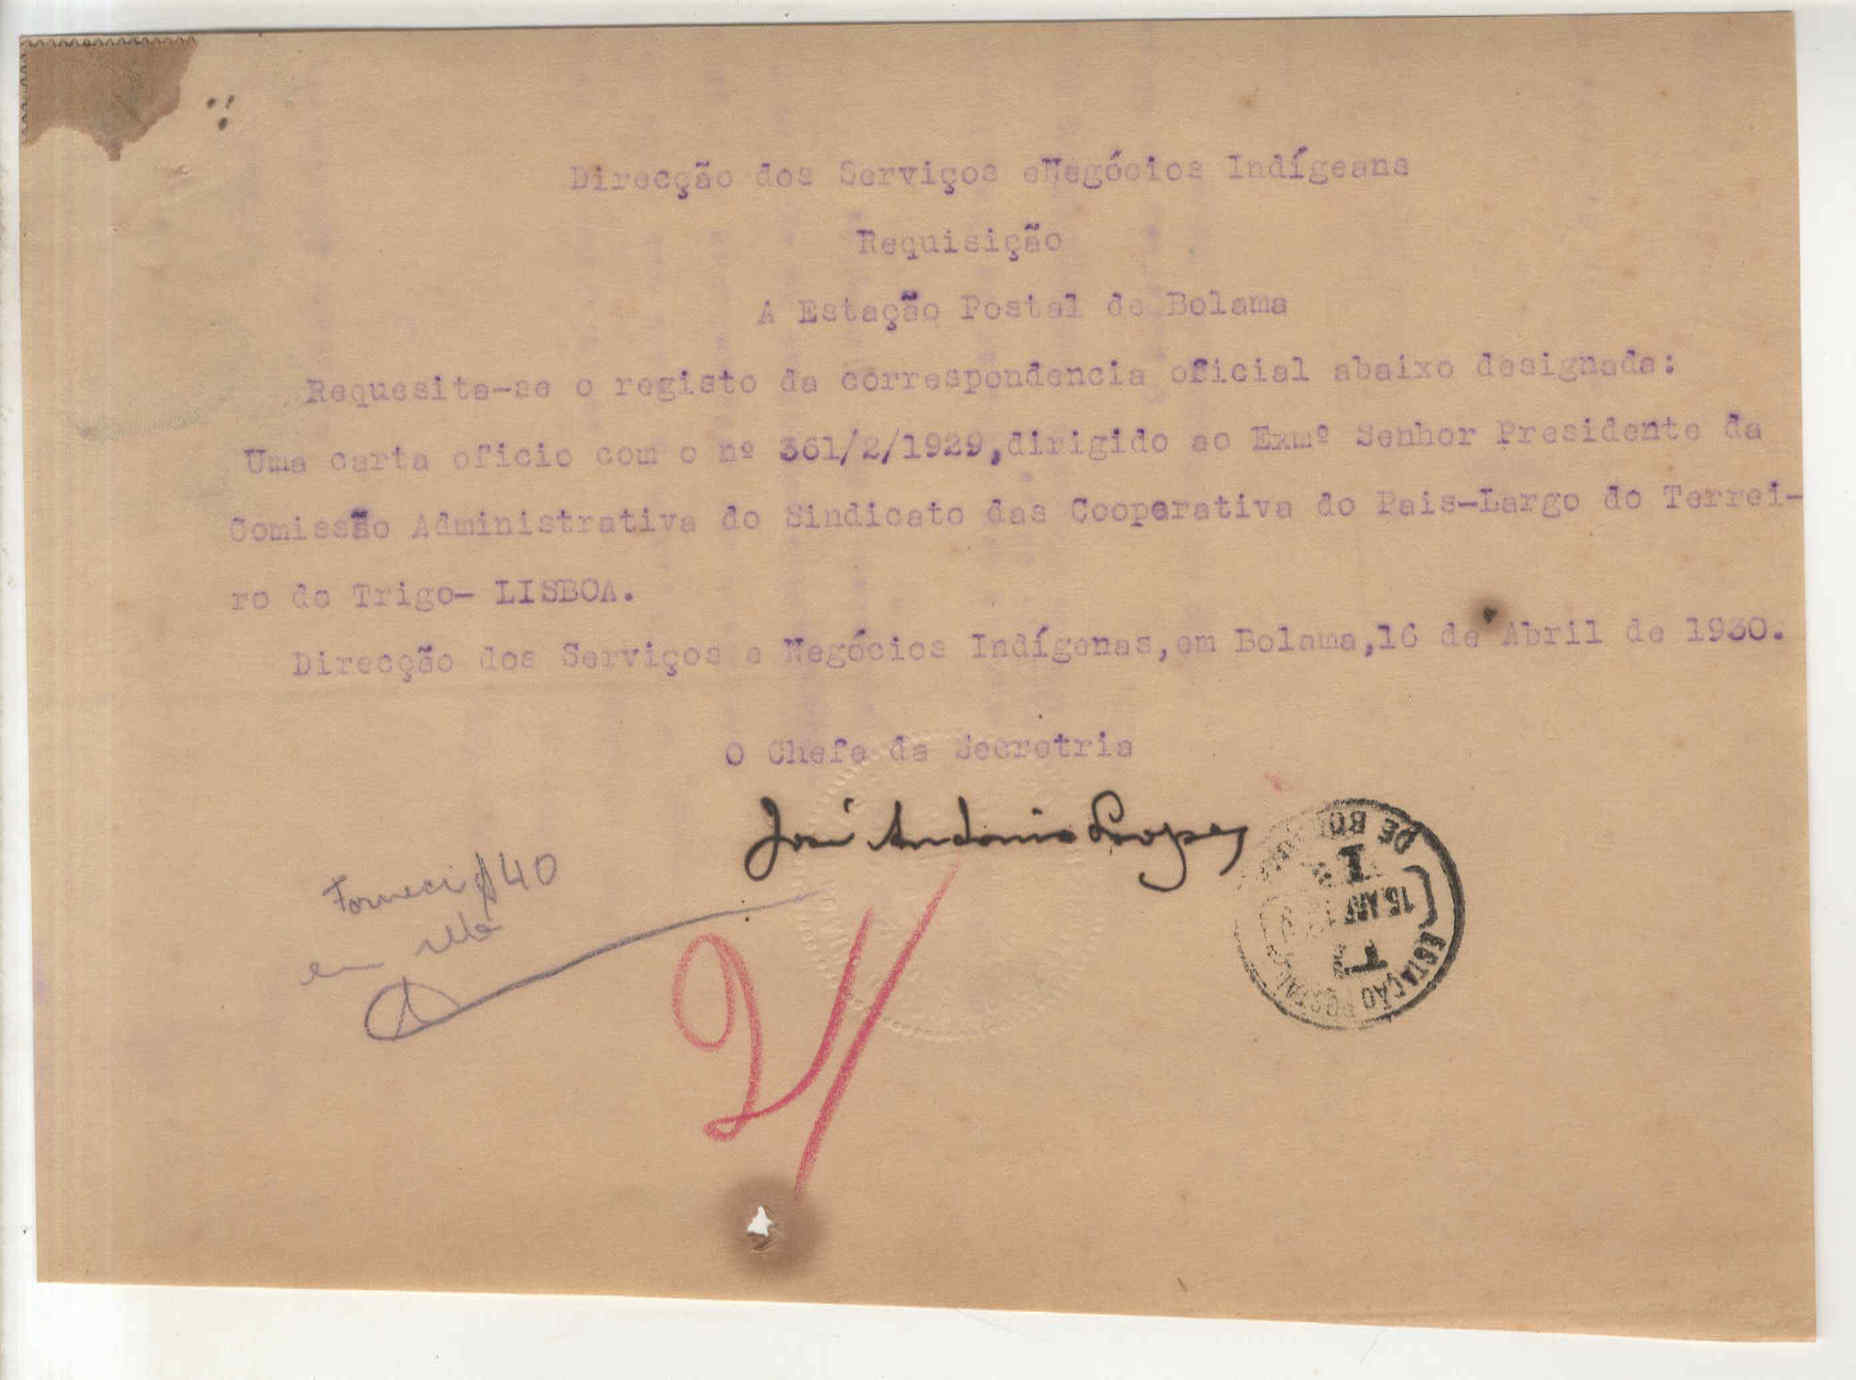 Direcção dos Serviços eNegócios Indígeans
Requisição
A Estação Postal de Bolama
Requesita-se o registo da correspondencia oficial abaixo designada:
Uma carta oficio com o nº 361/2/1929,dirigido ao Exmº Senhor Presidente da
Comissão Administrativa do Sindicato das Cooperativa do Pais-Largo do Terrei-
ro do Trigo- LISBOA.
Direcção dos Serviços e Negócios Indígenas,em Bolama,16 de Abril de 1930.
O Chefe da Secretria
José Antonio Lopes
Forneci $40
em
ESTAÇÃO POSTAL
DE BOLAMA